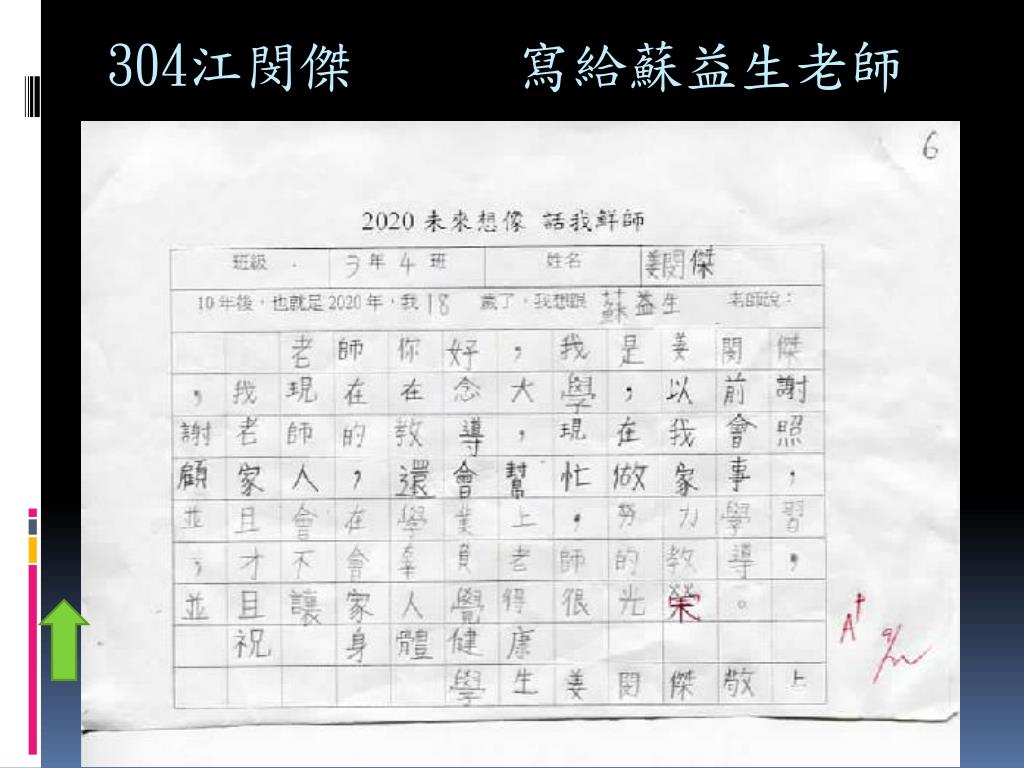 304江閔傑 寫給蘇益生老師
6
2020 未來想像 話我鮮師
班級 3 年 4 班 姓名 姜閔傑
10 年後，也就是 2020 年，我 18 歲了，我想跟 蘇益生 老師說：
老師你好，我是姜閔傑
，我現在在念大學，以前謝
謝老師的教導，現在我會照
顧家人，還會幫忙做家事，
並且會在學業上，努力學習
，才不會辜負老師的教導，
並且讓家人覺得很光榮。
祝 身體健康
學生姜閔傑敬上
A+